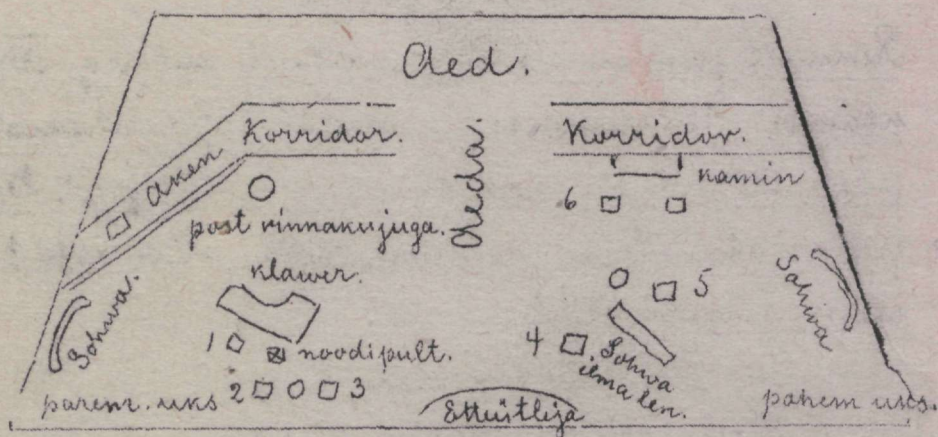 Aed.
Korridor.
Korridor.
Aeda.
Aken
kamin
6
post rinnakujuga.
klawer.
5
Sohwa.
Sohwa
1
noodipult.
4
Sohwa
ilma len.
2
3
parem. uks
Etteütleja
pahem uks.